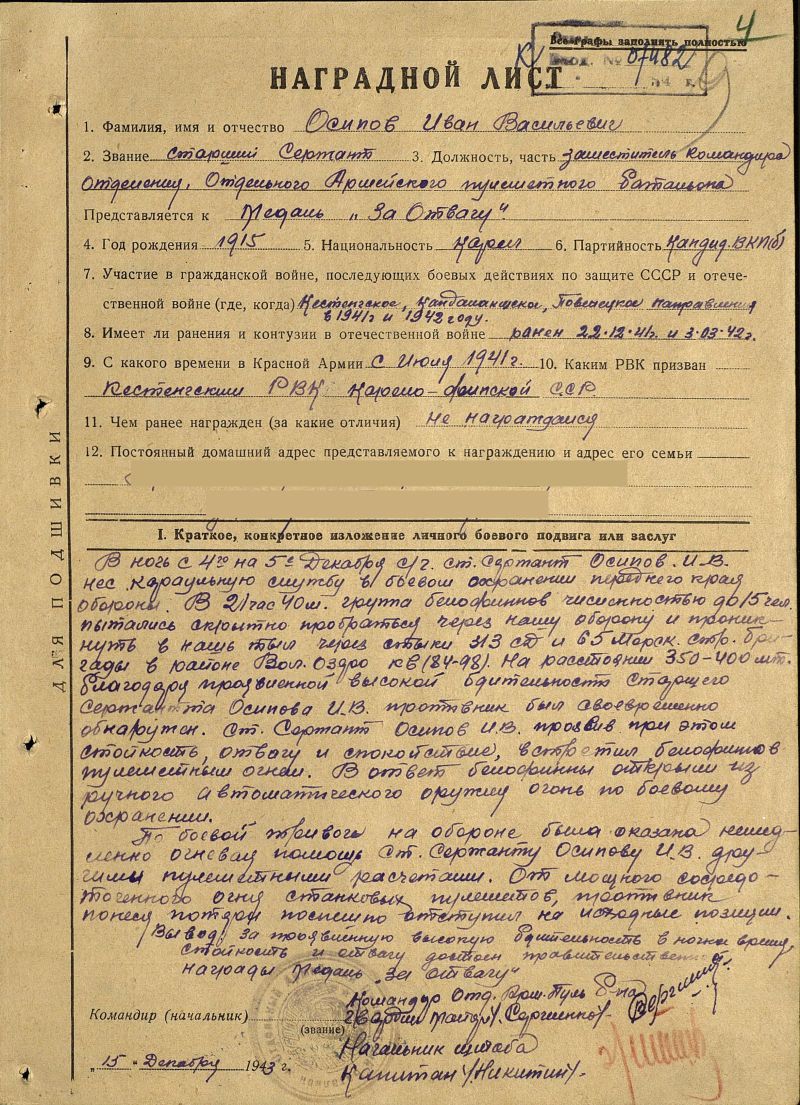 4
Все графы заполнять полностью
Вход. № 0/482
194 г.
9
НАГРАДНОЙ ЛИСТ
1. Фамилия, имя и отчество Осипов Иван Васильевич
2. Звание Старший Сержант 3. Должность, часть заместитель командира
отделения, Отдельного Армейского пулеметного батальона
Представляется к Медаль „За Отвагу“
4. Год рождения 1915 5. Национальность Карел 6. Партийность Кандид. ВКП(б)
7. Участие в гражданской войне, последующих боевых действиях по защите СССР и отече-
ственной войне (где, когда) Кестеньгское, Кандалакшское, Повенецкое направления
в 1941г и 1942 году.
8. Имеет ли ранения и контузии в отечественной войне ранен 22.12.41г. и 3.03.42г.
9. С какого времени в Красной Армии с Июля 1941г. 10. Каким РВК призван
Кестенгским РВК Карело-финской ССР
11. Чем ранее награжден (за какие отличия) не награждался
12. Постоянный домашний адрес представляемого к награждению и адрес его семьи
ДЛЯ ПОДШИВКИ
I. Краткое, конкретное изложение личного боевого подвига или заслуг
В ночь с 4го на 5е Декабря с/г. ст. Сержант Осипов. И.В.
нес караульную службу в боевом охранении переднего края
обороны. В 21 час 40 м. группа белофиннов численностью до 15 чел.
пытались скрытно пробраться через нашу оборону и проник-
нуть в нашь тыл через стыки 313 сд и 65 Морск. стр. бри-
гады в районе Вол. Озеро кв (84-98). На расстоянии 350-400 мт.
благодаря проявленной высокой бдительность старшего
Сержанта Осипова И.В. противник был своевременно
обнаружен. Ст. Сержант Осипов И.В. проявив при этом
стойкость, отвагу и спокойствие, встретил белофиннов
пулеметным огнем. В ответ белофинны открыли из
ручного автоматического оружия огонь по боевому
охранении.
По боевой тривоге на обороне была оказана немед-
ленно огневая помощь Ст. Сержанту Осипову И.В. дру-
гими пулеметными расчетами. От мощного сосредо-
точенного огня станковых пулеметов, противник
понеся потери поспешно отступил на исходные позиции.
Вывод: за проявленную высокую бдительность в ночное время,
стойкость и отвагу достоин правительственной
награды Медаль „За отвагу“
Командир Отд. Арм. Пул. б-на
Командир (начальник) Гвардии Майор /Сергиенко/
(звание)
Начальник штаба
„15“ Декабря 1943 г. Капитан /Никитин/